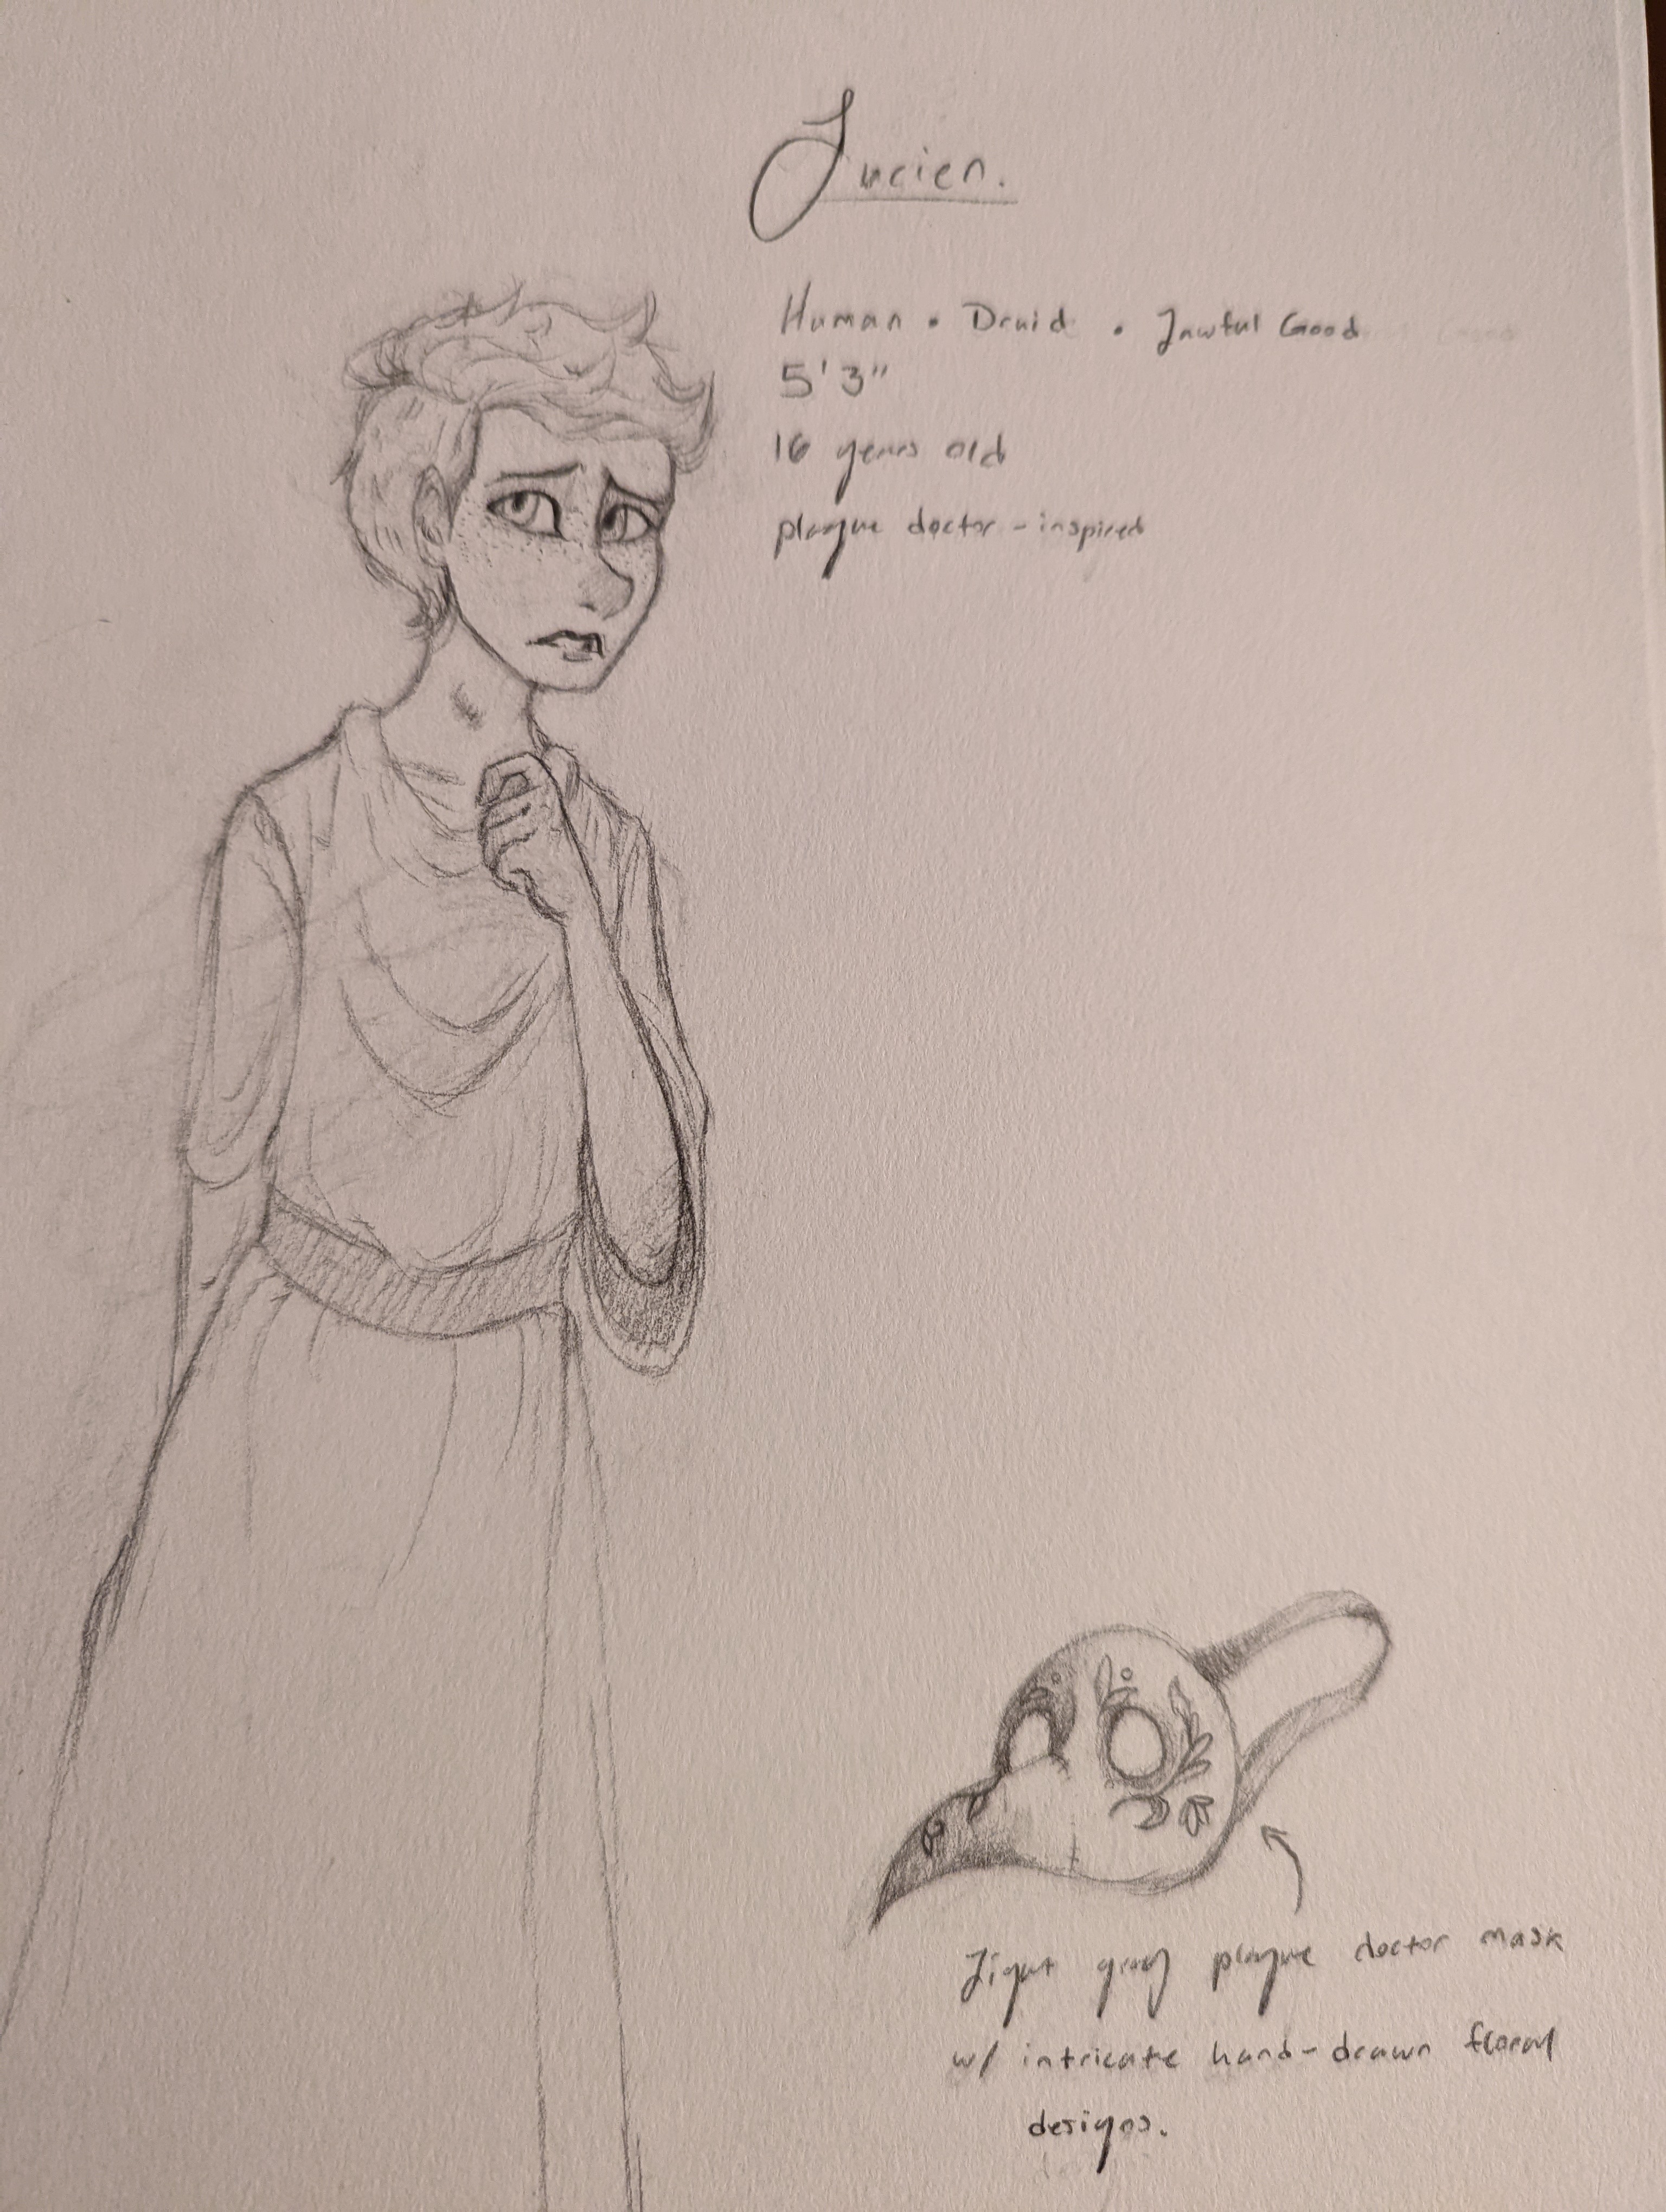 Lucien.
Human • Druid • Lawful Good
5'3"
16 years old
plague doctor-inspired
Light gray plague doctor mask
w/ intricate hand-drawn floral
designs.